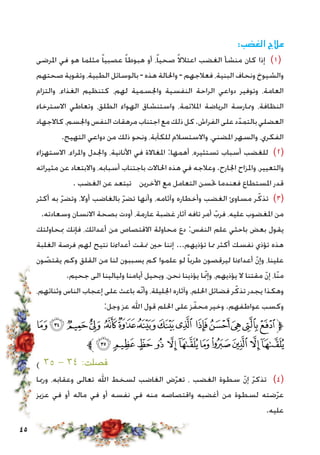 علاج الغضب:
(١) إذا كان منشأ الغضب اعتلالاً صحياً، أو هبوطاً عصبياً مثلما هو في المرضى
والشيوخ ونحاف البنية، فعلاجهم - والحالة هذه - بالوسائل الطبية، وتقوية صحتهم
العامة، وتوفير دواعي الراحة النفسية والجسمية لهم، كتنظيم الغذاء، والتزام
النظافة، وممارسة الرياضة الملائمة، واستنشاق الهواء الطلق، وتعاطي الاسترخاء
العضلي بالتمدّد على الفراش. كل ذلك مع اجتناب مرهقات النفس والجسم، كالإجهاد
الفكري، والسهر المضني، والاستسلام للكآبة، ونحو ذلك من دواعي التهيج.
(٢) للغضب أسباب تستثيره، أهمها: المغالاة في الأنانية، والجدل والمراء، الاستهزاء
والتعيير، والمزاح الجارح. وعلاجه في هذه الحالات باجتناب أسبابه، والابتعاد عن مثيراته
قدر المستطاع فعندما تحسن التعامل مع الآخرين تبتعد عن الغضب .
(٣) تذكّر مساوئ الغضب وأخطاره وآثامه، وأنها تضرّ بالغاضب أولا، وتضرّ به أكثر
من المغضوب عليه، فربّ أمر تافه أثار غضبة عارمة، أودت بصحة الانسان وسعادته.
يقول بعض باحثي علم النفس: دع محاولة الاقتصاص من أعدائك، فإنك بمحاولتك
هذه تؤذي نفسك أكثر مما تؤذيهم... إننا حين نمقت أعداءنا نتيح لهم فرصة الغلبة
علينا، وإنّ أعداءنا ليرقصون طرباً لو علموا كم يسببون لنا من القلق وكم يقتصّون
منّا، إنّ مقتنا لا يؤذيهم، وإنّما يؤذينا نحن، ويحيل أيامنا وليالينا الى جحيم.
وهكذا يجدر تذكّر فضائل الحلم، وآثاره الجليلة، وأنّه باعث على إعجاب الناس وثنائهم،
وكسب عواطفهم. وخير محفّز على الحلم قول الله عز وجل:
ٱدْفَعْ بِٱلَّتِى هِىَ أَحْسَنُ فَإِذَا ٱلَّذِى بَيْنَكَ وَبَيْنَهُۥ عَدَٰوَةٌ كَأَنَّهُۥ وَلِىٌّ حَمِيمٌ ﴿٣٤﴾ وَمَا
يُلَقَّىٰهَآ إِلَّا ٱلَّذِينَ صَبَرُوا۟ وَمَا يُلَقَّىٰهَآ إِلَّا ذُو حَظٍّ عَظِيمٍ ﴿٣٥﴾
فصلت: ٣٤ - ٣٥ )
(٤) تذكّرّ إنّ سطوة الغضب ، تعرّض الغاضب لسخط الله تعالى وعقابه، وربما
عرّضته لسطوة من أغضبه واقتصاصه منه في نفسه أو في ماله أو في عزيز
عليه.
٤٥